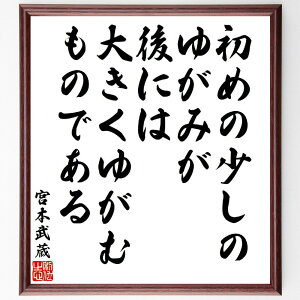 初めの少しの
ゆがみが
後には
大きくゆがむ
ものである
宮本武蔵